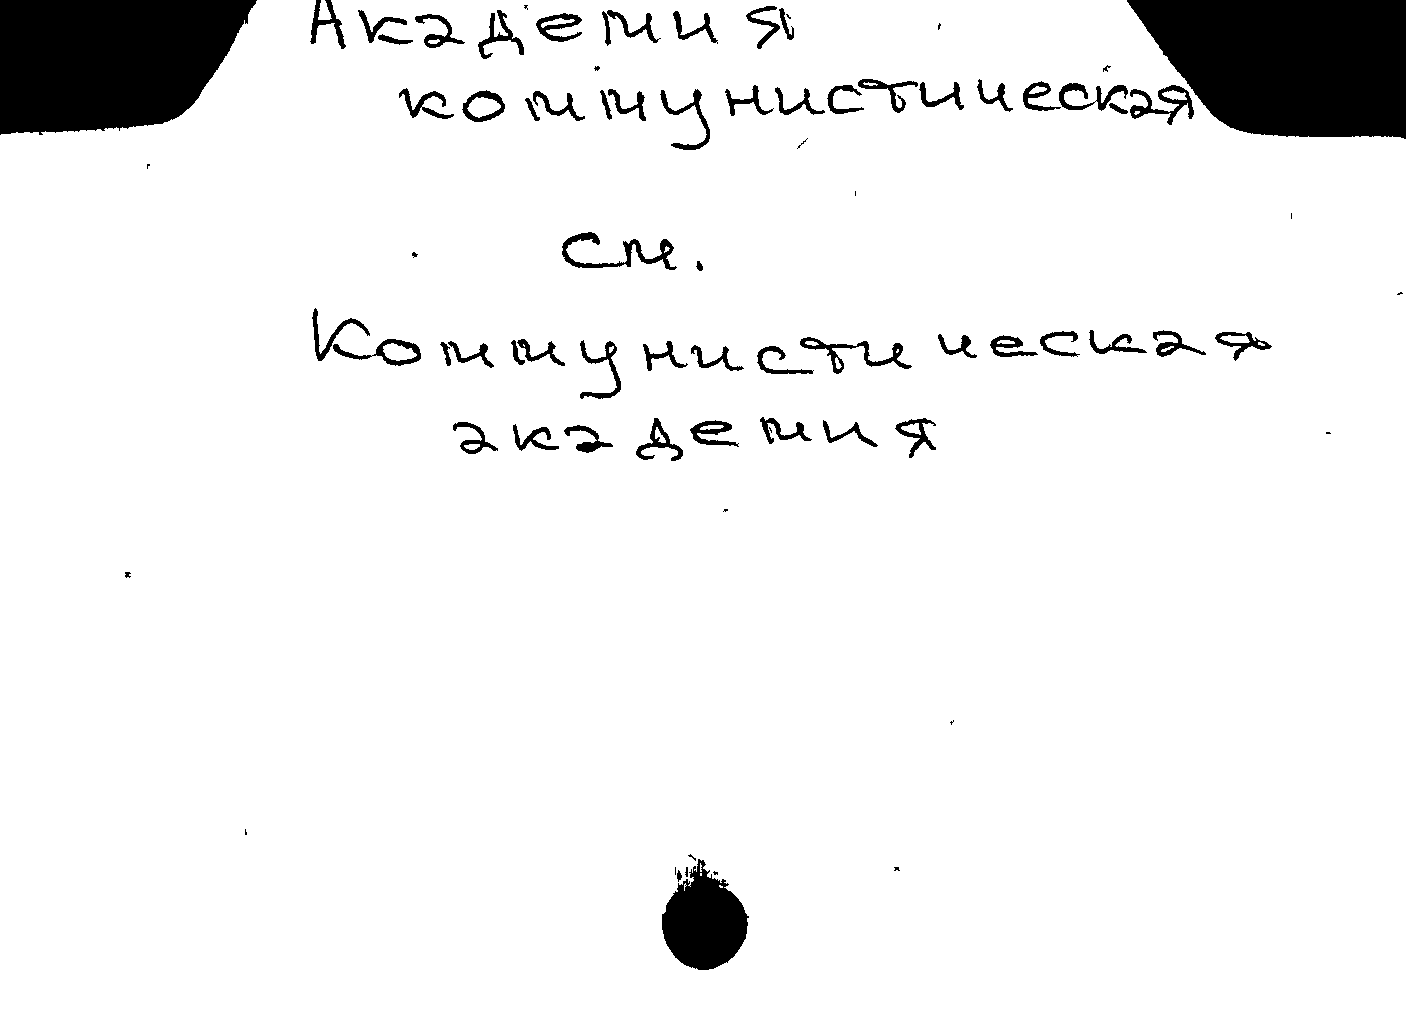 Академия
коммунистическая
см.
Коммунистическая
академия